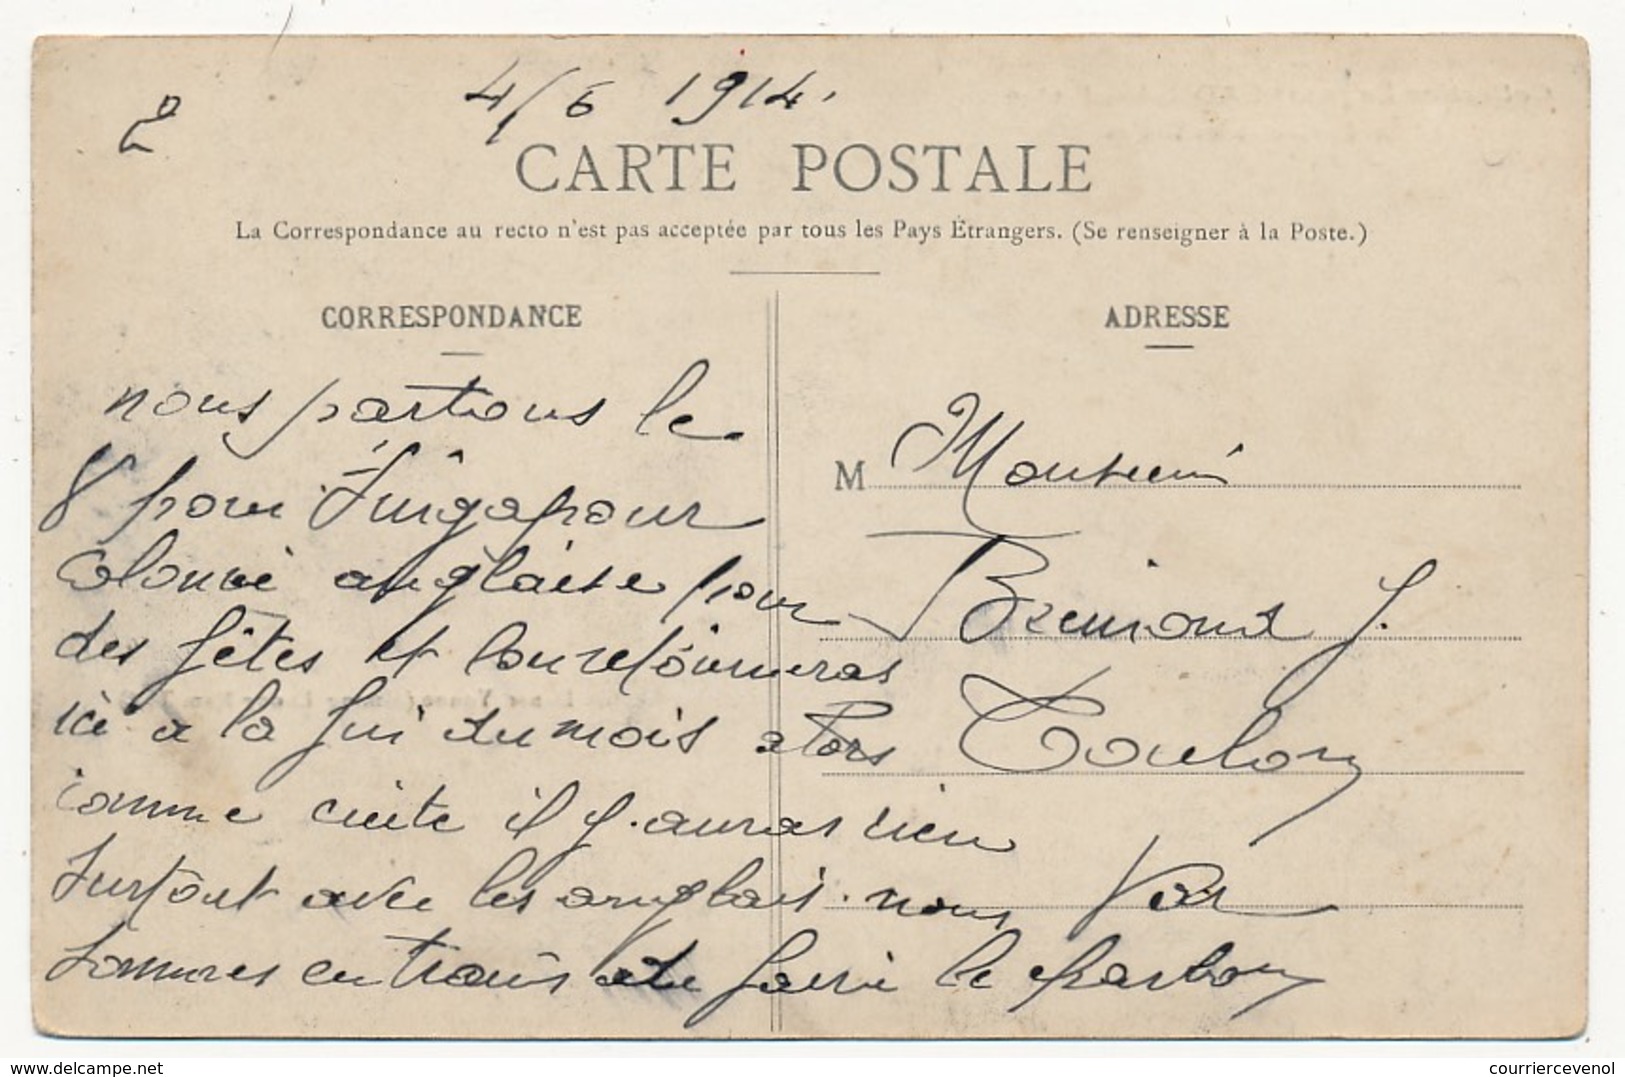 4/6 1914.
2
CARTE POSTALE
La Correspondance au recto n'est pas acceptée par tous les Pays Étrangers. (Se renseigner à la Poste.)
CORRESPONDANCE
nous partons le
8 pour Singapour
colonie anglaise pour
des fêtes et l'on retourneras
ici a la fin du mois alors
comme cuite il y auras rien
surtout avec les anglais. nous
sommes en train de faire le charbon
ADRESSE
M Monsieur
Bremond J.
Toulon
Var
www.delcampe.net
courriercevenol